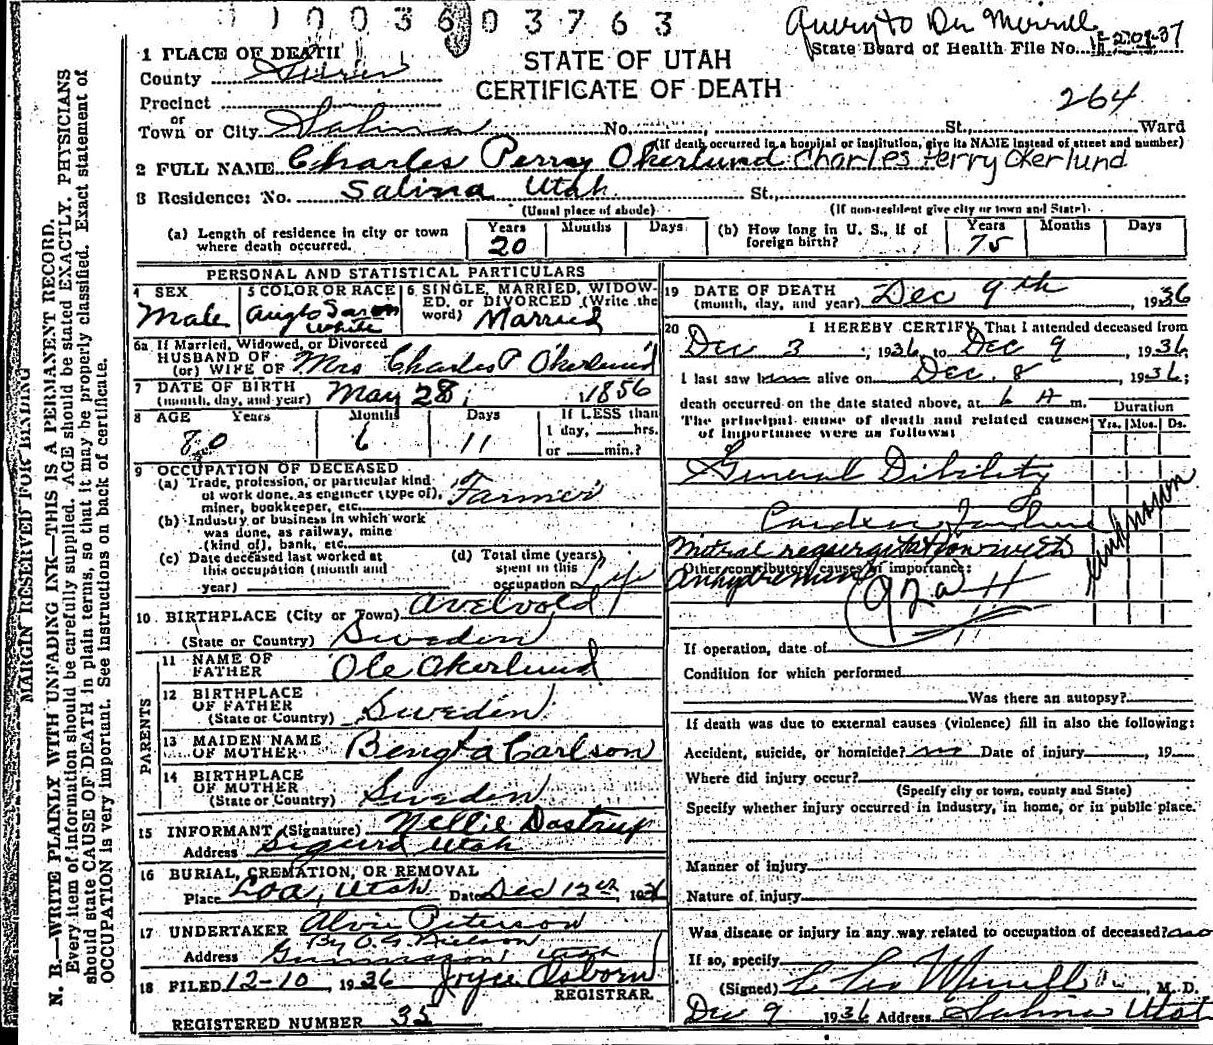 1003603763
Query to Dr Merrill
State Board of Health File No. 1-20-37
STATE OF UTAH
CERTIFICATE OF DEATH
264
1 PLACE OF DEATH
County Sevier
Precinct
or
Town or City Salina No. , St., Ward
(If death occurred in a hospital or institution, give its NAME instead of street and number)
2 FULL NAME Charles Perry Okerlund Charles Perry Okerlund
3 Residence: No. Salina Utah St.,
(Usual place of abode) (If non-resident give city or town and State)
(a) Length of residence in city or town where death occurred. Years 20 Months Days (b) How long in U. S., if of foreign birth? Years 75 Months Days
PERSONAL AND STATISTICAL PARTICULARS
4 SEX Male
5 COLOR OR RACE Anglo Saxon White
6 SINGLE, MARRIED, WIDOWED, or DIVORCED (Write the word) Married
6a If Married, Widowed, or Divorced
HUSBAND OF
(or) WIFE OF Mrs Charles P Okerlund
7 DATE OF BIRTH
(month, day, and year) May 28, 1856
8 AGE Years 80 Months 6 Days 11 If LESS than 1 day, hrs. or min.?
9 OCCUPATION OF DECEASED
(a) Trade, profession, or particular kind of work done, as engineer (type of), miner, bookkeeper, etc. Farmer
(b) Industry or business in which work was done, as railway, mine (kind of), bank, etc.
(c) Date deceased last worked at this occupation (month and year)
(d) Total time (years) spent in this occupation Life
10 BIRTHPLACE (City or Town) Avelvold
(State or Country) Sweden
PARENTS
11 NAME OF FATHER Ole Okerlund
12 BIRTHPLACE OF FATHER
(State or Country) Sweden
13 MAIDEN NAME OF MOTHER Bengta Carlson
14 BIRTHPLACE OF MOTHER
(State or Country) Sweden
15 INFORMANT (Signature) Nellie Dastrup
Address Sigurd Utah
16 BURIAL, CREMATION, OR REMOVAL
Place Loa, Utah Date Dec 12th, 1936
17 UNDERTAKER Alvie Peterson
By O. G. Nielson
Address Gunnison Utah
18 FILED 12-10, 1936 Joyce Osborn
REGISTRAR.
REGISTERED NUMBER 35
19 DATE OF DEATH
(month, day, and year) Dec 9th, 1936
20 I HEREBY CERTIFY, That I attended deceased from
Dec 3, 1936, to Dec 9, 1936.
I last saw him alive on Dec. 8, 1936;
death occurred on the date stated above, at 6 A m.
The principal cause of death and related causes of importance were as follows:
Duration
Yrs. Mos. Ds.
General Dibility
Cardiac Failure
unknown
Mitral regurgitation with
Other contributory causes of importance:
92a
If operation, date of
Condition for which performed
Was there an autopsy?
If death was due to external causes (violence) fill in also the following:
Accident, suicide, or homicide? no Date of injury , 19
Where did injury occur?
(Specify city or town, county and State)
Specify whether injury occurred in industry, in home, or in public place.
Manner of injury
Nature of injury
Was disease or injury in any way related to occupation of deceased? no
If so, specify
(Signed) Leo Merrill, M. D.
Dec 9 1936 Address Salina Utah
MARGIN RESERVED FOR BINDING
N. B.—WRITE PLAINLY WITH UNFADING INK—THIS IS A PERMANENT RECORD.
Every item of information should be carefully supplied. AGE should be stated EXACTLY. PHYSICIANS
should state CAUSE OF DEATH in plain terms, so that it may be properly classified. Exact statement of
OCCUPATION is very important. See instructions on back of certificate.